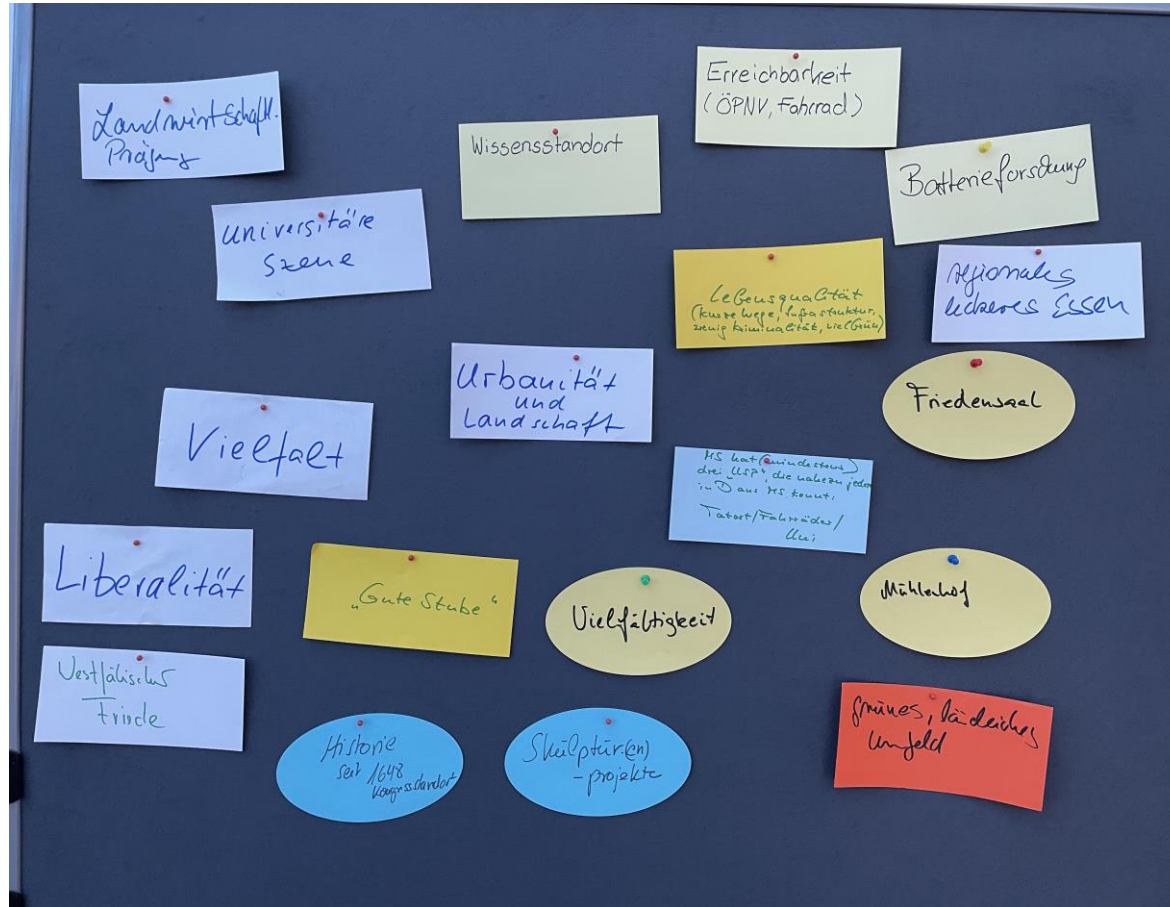 Landwirtschaftl.
Prägung
Wissensstandort
Erreichbarkeit
(ÖPNV, Fahrrad)
Batterieforschung
universitäre
Szene
Lebensqualität
(kurze Wege, Infrastruktur,
wenig Kriminalität, viel Grün)
regionales
leckeres Essen
Urbanität
und
Landschaft
Friedensaal
Vielfalt
MS hat (mindestens)
drei "USP", die nahezu jeder
in D aus MS kennt:
Tatort/Fahrräder/
Uni
Liberalität
"Gute Stube"
Vielfältigkeit
Mühlenhof
Westfälischer
Friede
Historie
seit 1648
Kongressstandort
Skulptur(en)
-projekte
grünes, ländliches
Umfeld